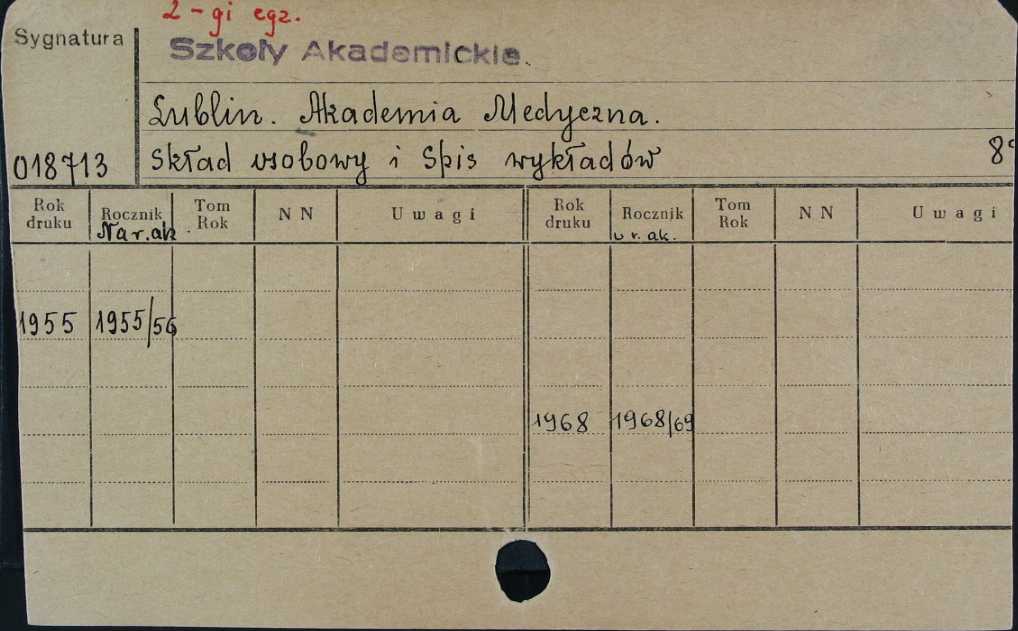 2-gi egz.
Sygnatura
Szkoły Akademickie.
Lublin. Akademia Medyczna.
018713 Skład osobowy i Spis wykładów 8°
Rok druku Rocznik Na r.ak. Tom Rok N N Uwagi Rok druku Rocznik r. ak. Tom Rok N N Uwagi
1955 1955/56
1968 1968/69